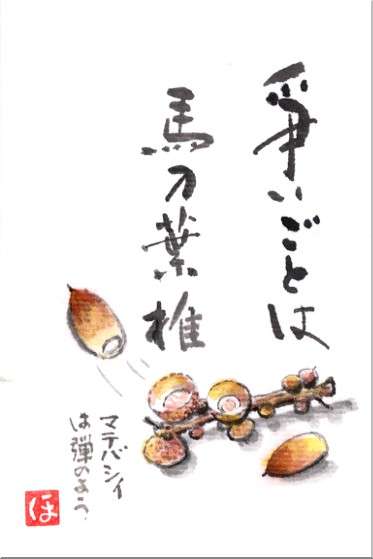 争いごとは
馬刀葉椎
マテバシイ
は弾のよう
ほ